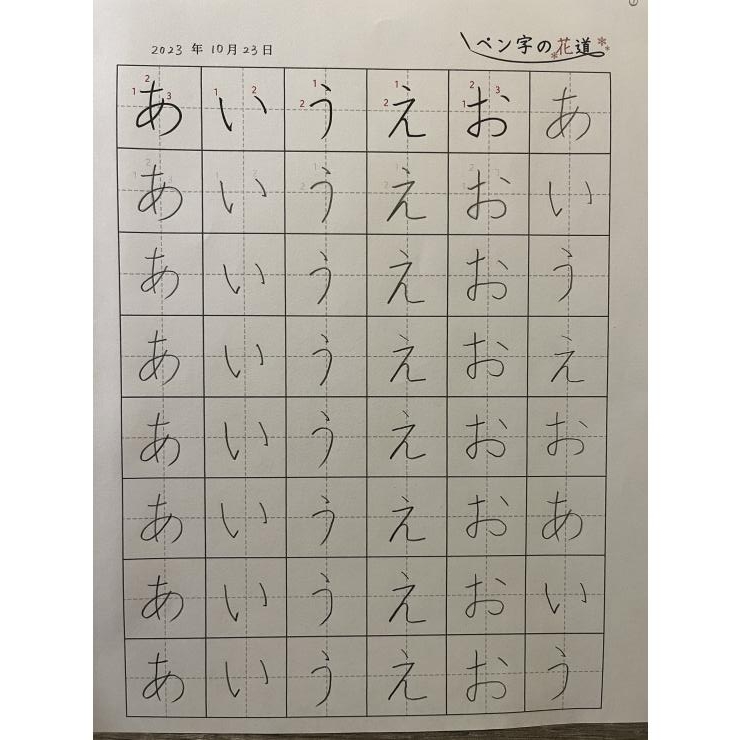 2023 年 10月23日
ペン字の花道
あ い う え お あ
あ い う え お い
あ い う え お う
あ い う え お え
あ い う え お お
あ い う え お あ
あ い う え お い
あ い う え お う